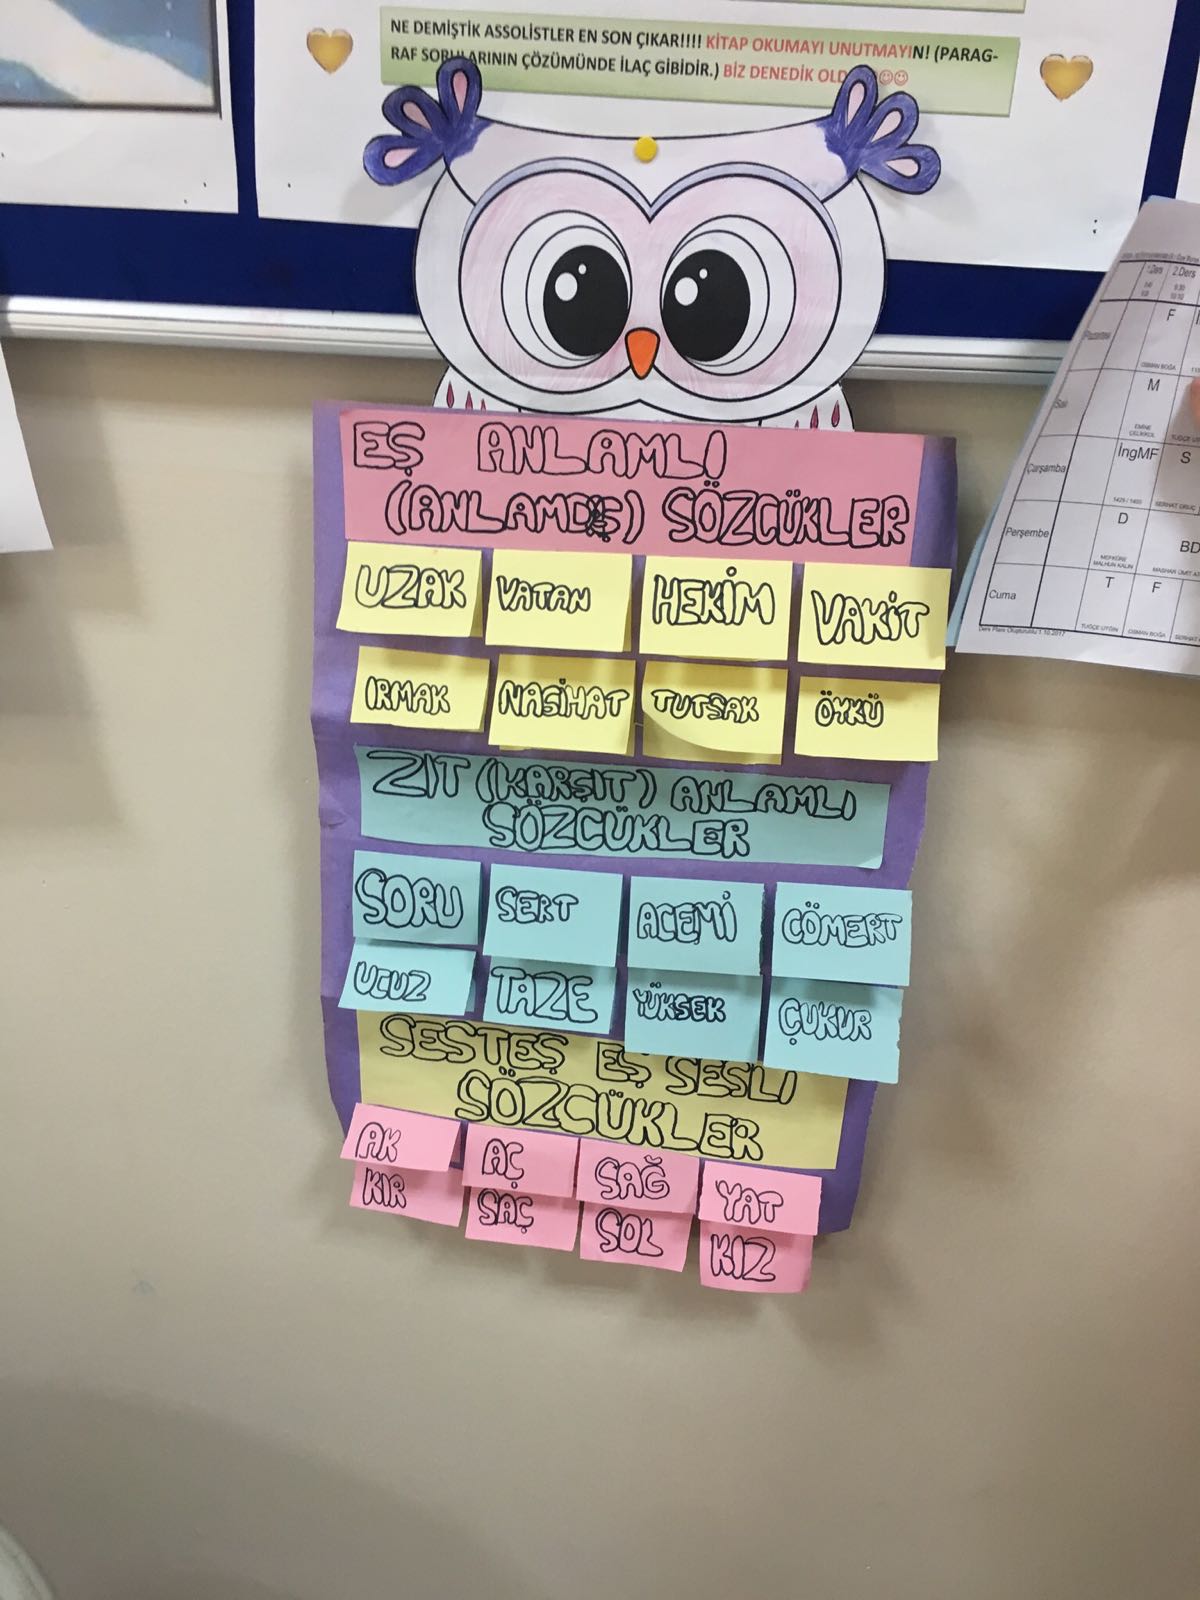 NE DEMİŞTİK ASSOLİSTLER EN SON ÇIKAR!!!! KİTAP OKUMAYI UNUTMAYIN! (PARAG-
RAF ÇÖZÜMÜNDE İLAÇ GİBİDİR.) BİZ DENEDİK
EŞ ANLAMLI
(ANLAMDAŞ) SÖZCÜKLER
UZAK VATAN HEKİM VAKİT
IRMAK NASİHAT TUTSAK ÖYKÜ
ZIT (KARŞIT) ANLAMLI
SÖZCÜKLER
SORU SERT ACEMİ CÖMERT
UCUZ TAZE YÜKSEK ÇUKUR
SESTEŞ EŞ SESLİ
SÖZCÜKLER
AK AÇ SAĞ YAT
KIR SAÇ SOL KIZ
1.Ders 2.Ders
Pazartesi F
OSMAN BOĞA
Salı M
EMİNE
ÇELİKKOL
Çarşamba İngMF S
Perşembe D BD
Cuma T F
TUĞÇE UYGIN OSMAN BOĞA
Ders Planı Oluşturuldu:1.10.2017